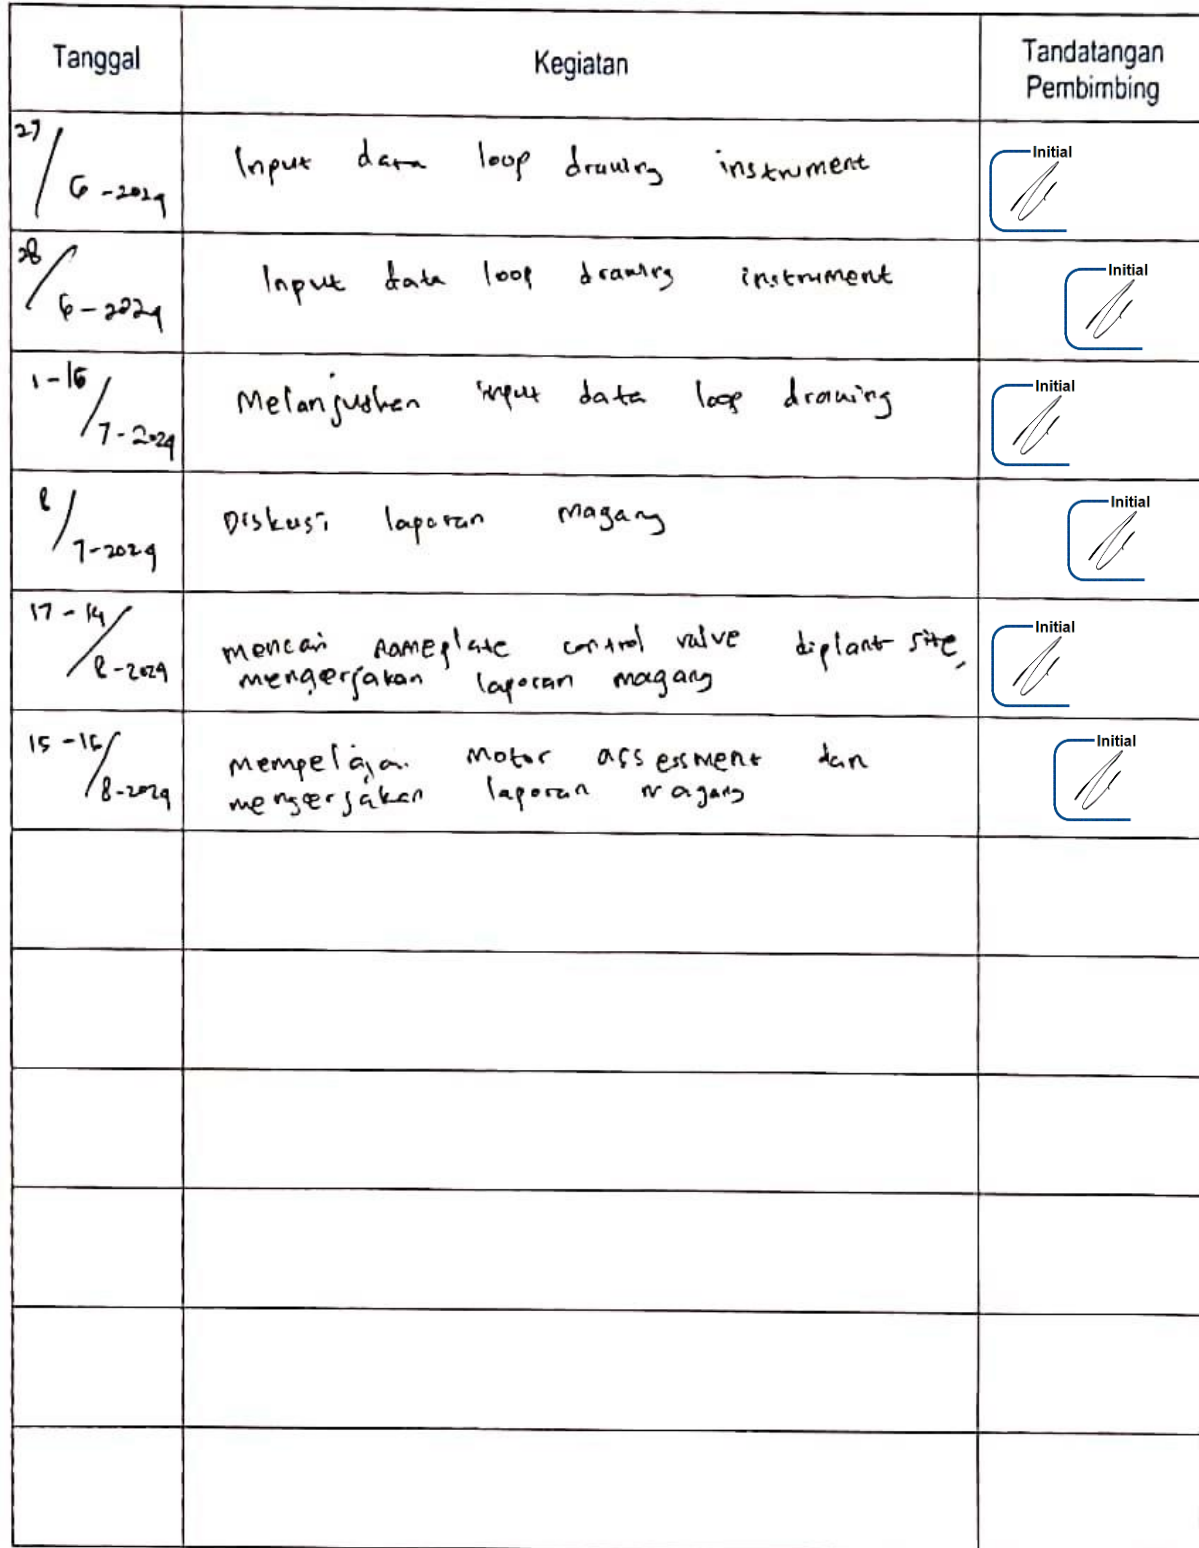 Tanggal
Kegiatan
Tandatangan
Pembimbing
27/6-2024
Input data loop drawing instrument
Initial
28/6-2024
Input data loop drawing instrument
Initial
1-16/7-2024
Melanjutkan input data loop drawing
Initial
8/7-2024
Diskusi laporan magang
Initial
17-14/8-2024
mencari nameplate control valve diplant site,
mengerjakan laporan magang
Initial
15-16/8-2024
mempelajari motor assessment dan
mengerjakan laporan magang
Initial